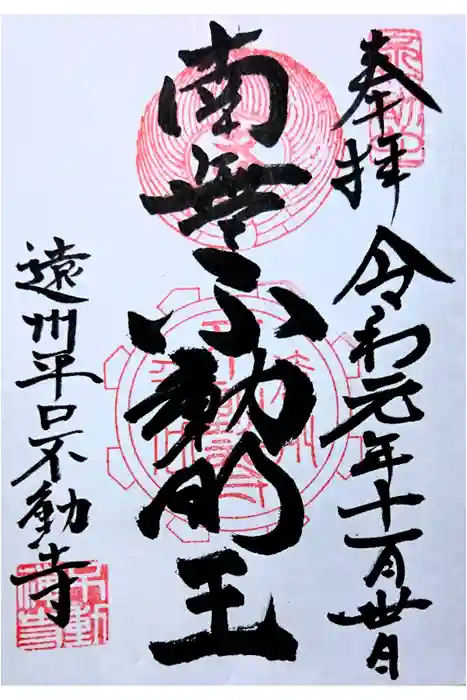 奉拝 令和元年十一月廿日
南無不動明王
遠州平口不動寺